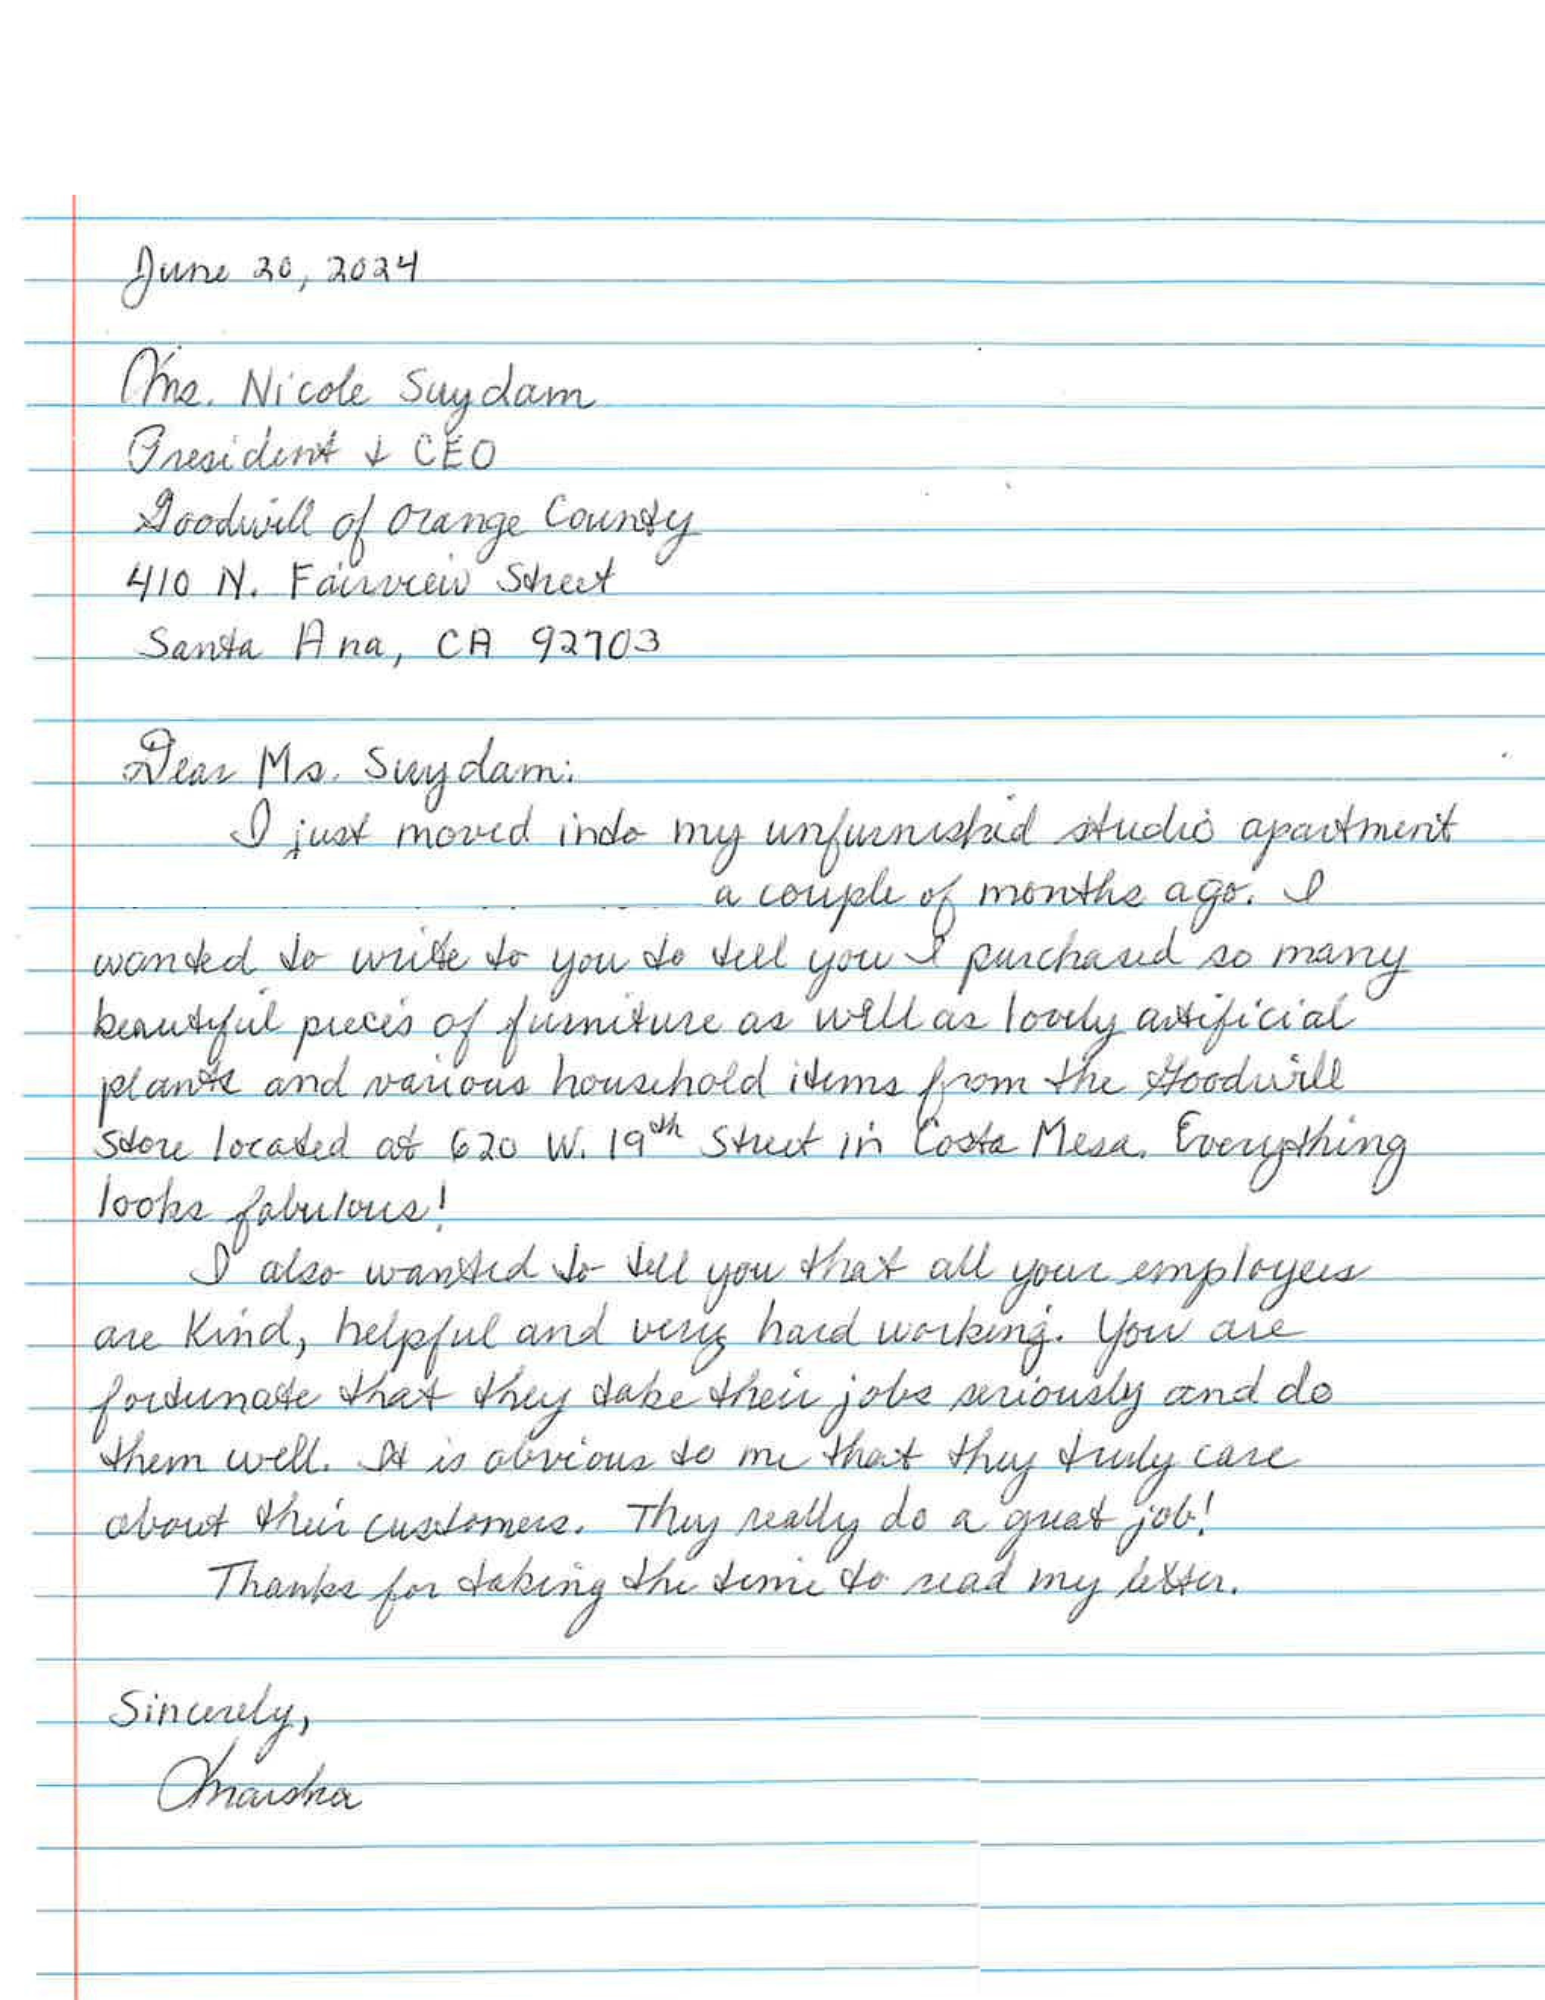 June 20, 2024
Ms. Nicole Suydam
President & CEO
Goodwill of Orange County
410 N. Fairview Street
Santa Ana, CA 92703
Dear Ms. Suydam:
I just moved into my unfurnished studio apartment
a couple of months ago. I
wanted to write to you to tell you I purchased so many
beautiful pieces of furniture as well as lovely artificial
plants and various household items from the Goodwill
Store located at 620 W. 19th Street in Costa Mesa. Everything
looks fabulous!
I also wanted to tell you that all your employees
are kind, helpful and very hard working. You are
fortunate that they take their jobs seriously and do
them well. It is obvious to me that they truly care
about their customers. They really do a great job!
Thanks for taking the time to read my letter.
Sincerely,
Marsha